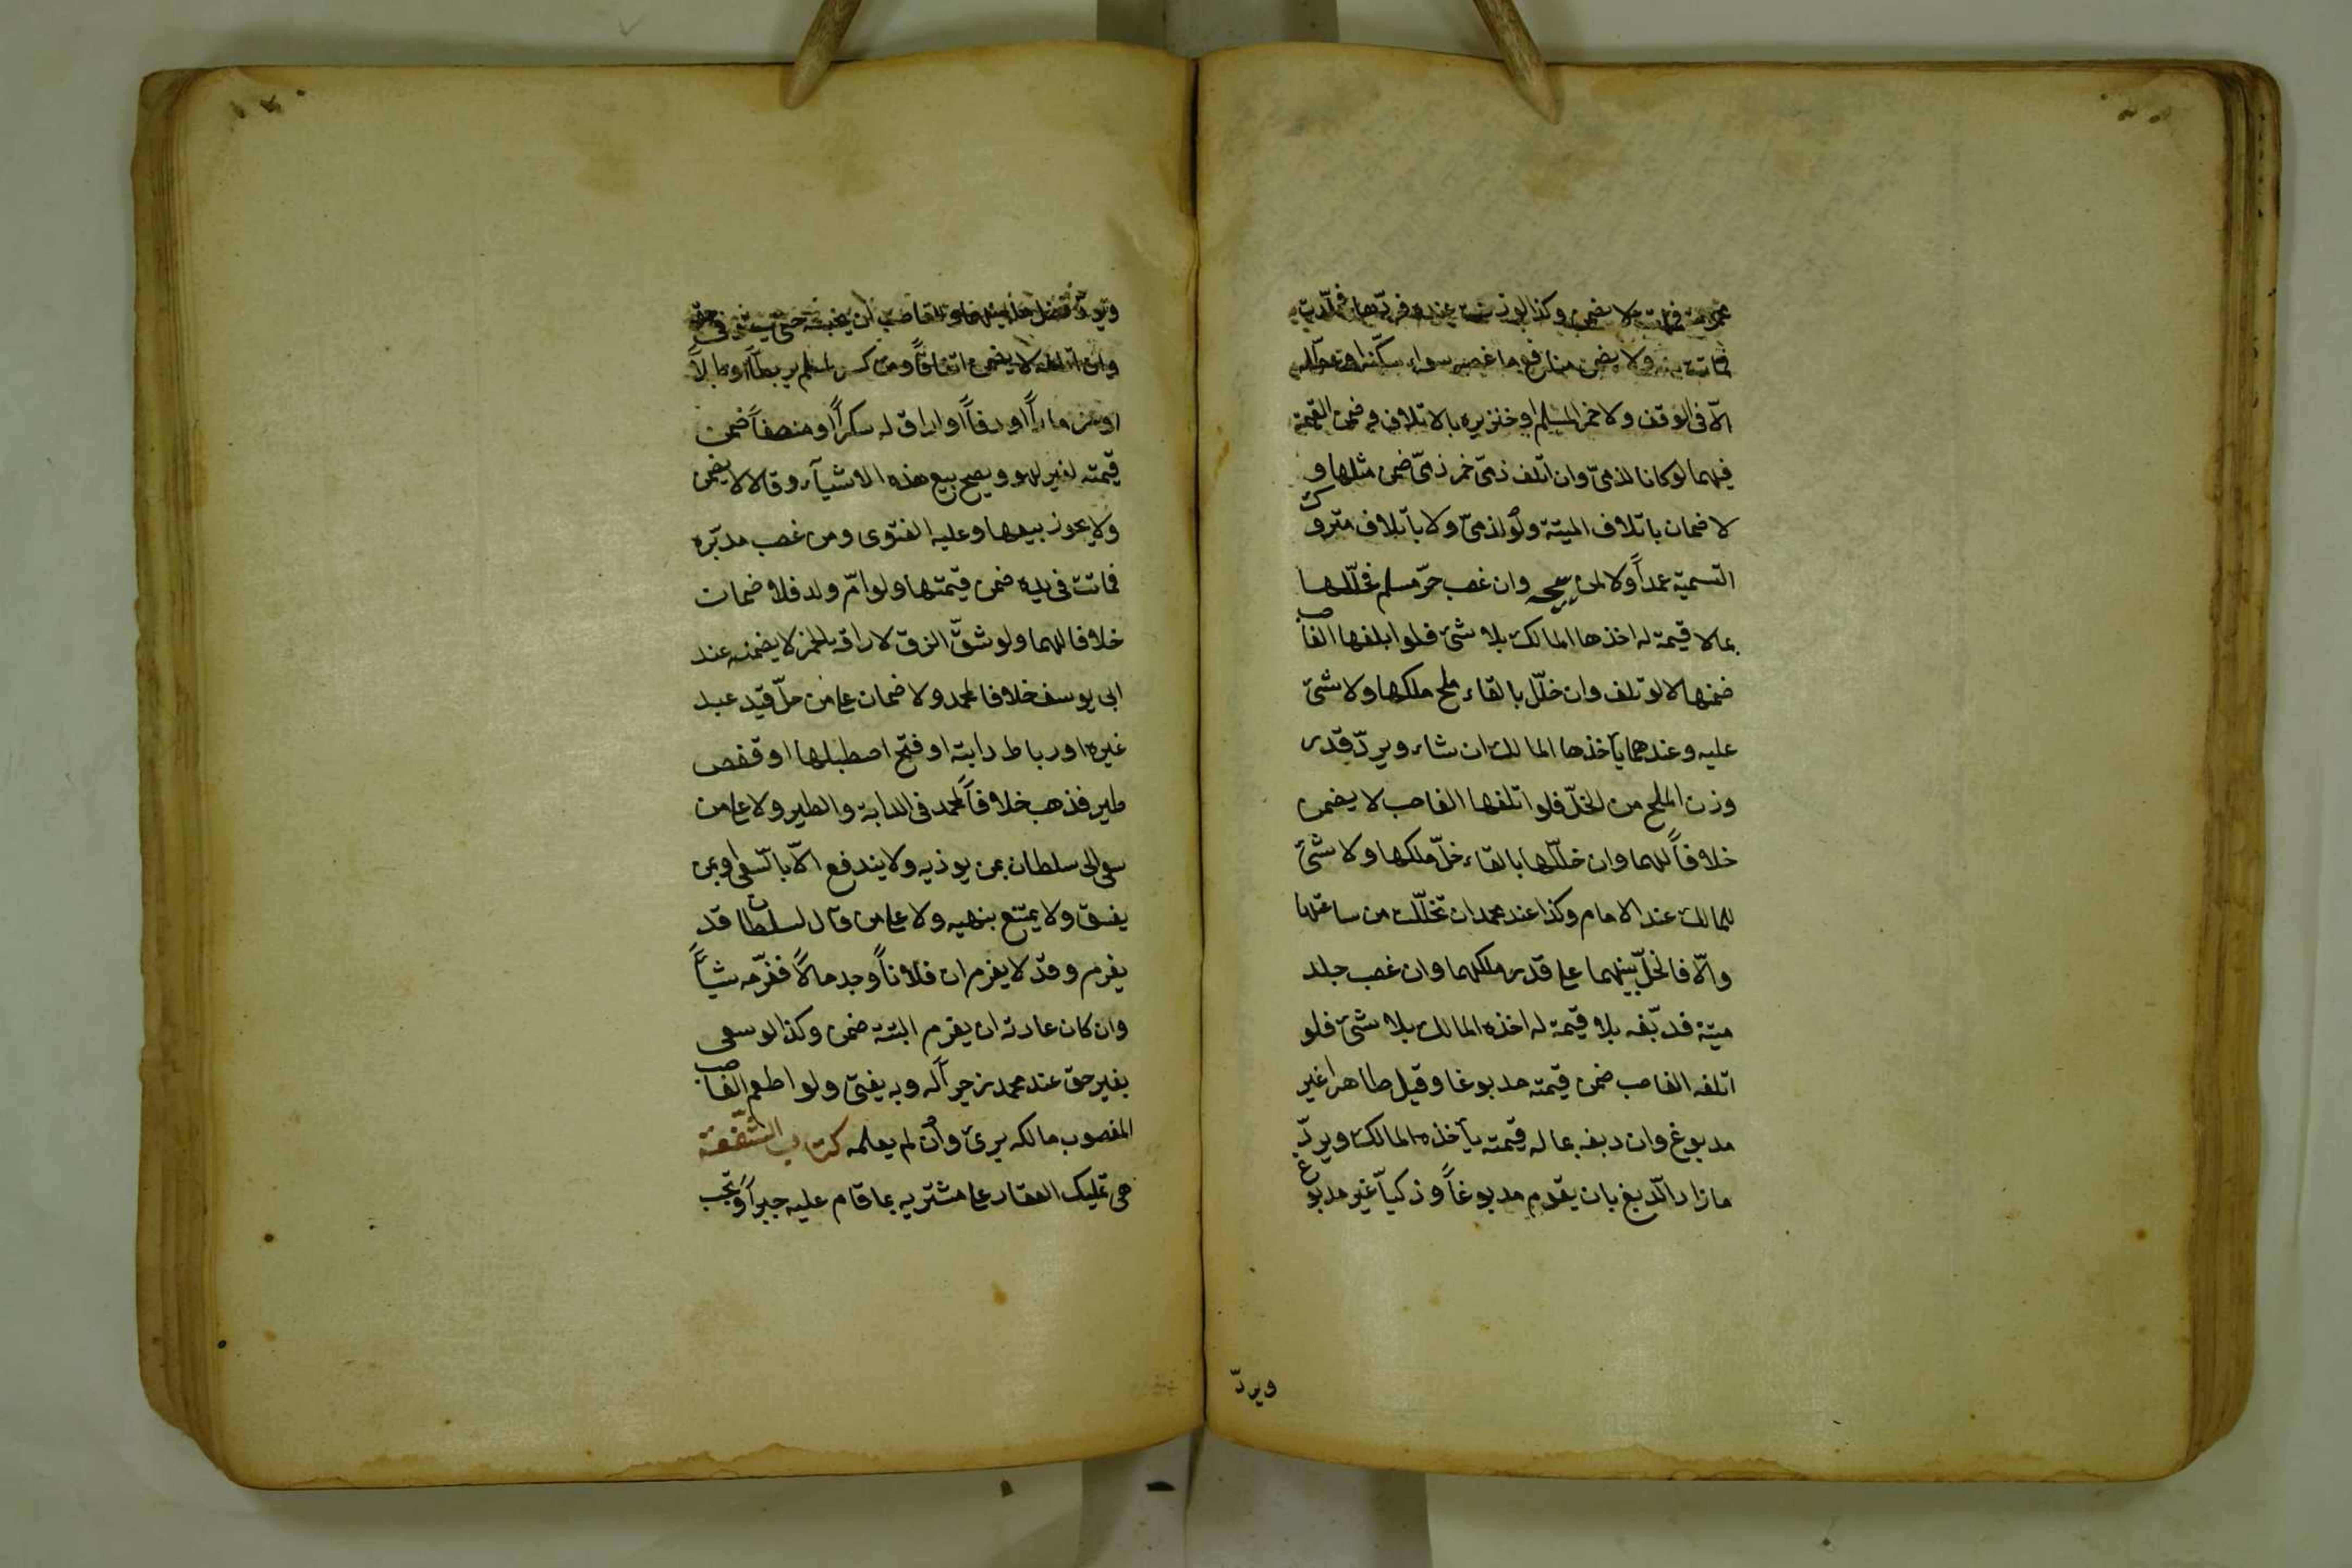 فماتت لا يضمن وكذا لو زنت عنده فردها فجلدت
فماتت به ولا يضمن منافع ما غصبه سواء سكنه او عطله
الّا في الوقف ولا خمر المسلم او خنزيره بالاتلاف وضمن القيمة
فيهما لو كانا لذميّ وان اتلف ذميّ خمر ذميّ ضمن مثلها و
لا ضمان باتلاف الميتة ولو لذميّ ولا باتلاف متروك
التسمية عمداً ولا لمن يبيحه وان غصب خمر مسلم فخلّلها
بما لا قيمة له اخذها المالك بلا شئ فلو اتلفها الغاصب
ضمنها لا لو تلف وان خلّل بالقاء ملح ملكها ولا شئ
عليه وعندهما يأخذها المالك ان شاء ويردّ قدر
وزن الملح من الخلّ فلو اتلفها الغاصب لا يضمن
خلافاً لهما وان خلّلها بالقاء خلّ ملكها ولا شئ
للمالك عند الامام وكذا عند محمد ان تخلّلت من ساعتها
والّا فالخلّ بينهما على قدر ملكهما وان غصب جلد
ميتة فدبّغه بلا قيمة له اخذه المالك بلا شئ فلو
اتلفه الغاصب ضمن قيمته مدبوغا وقيل طاهرا غير
مدبوغ وان دبغه بما له قيمته يأخذه المالك ويردّ
ما زاد الّدبغ بان يقوم مدبوغاً وذكياً غير مدبوغ
ويردّ
ويرد فضل ما بينهما وللغاصب ان يحبسه حتى يستوفي حقه
وان اتلفه لا يضمن اتفاقاً ومن كسر لمسلم بربطاً او طبلاً
او مزماراً او دفاً او اراق له سكراً او منصفاً ضمن
قيمته لغير لهو ويصح بيع هذه الاشيآء وقالا لا يضمن
ولا يجوز بيعها وعليه الفتوى ومن غصب مدبّره
فماتت في يده ضمن قيمتها ولو امّ ولد فلا ضمان
خلافا لهما ولو شقّ الزق لاراقة الخمر لا يضمنه عند
ابي يوسف خلافا لمحمد ولا ضمان على من حلّ قيد عبد
غيره او رباط دابته او فتح اصطبلها او قفص
طير فذهب خلافاً لمحمد في الدابة والطير ولا على من
سعى الى سلطان بمن يوذيه ولا يندفع الّا بالّسعى او بمن
يفسق ولا يمتنع بنهيه ولا على من قال لسلطان قد
يغرم وقد لا يغرم ان فلاناً وجد مالاً فغرّمه شيأً
وان كان عادته ان يغرم البتة ضمن وكذا لو سعى
بغير حق عند محمد زجراً له وبه يفتى ولو اطعم الغاصب
المغصوب مالكه برئ وان لم يعلمه كتاب الشفعة
هي تمليك العقار على مشتريه بما قام عليه جبراً وتجب